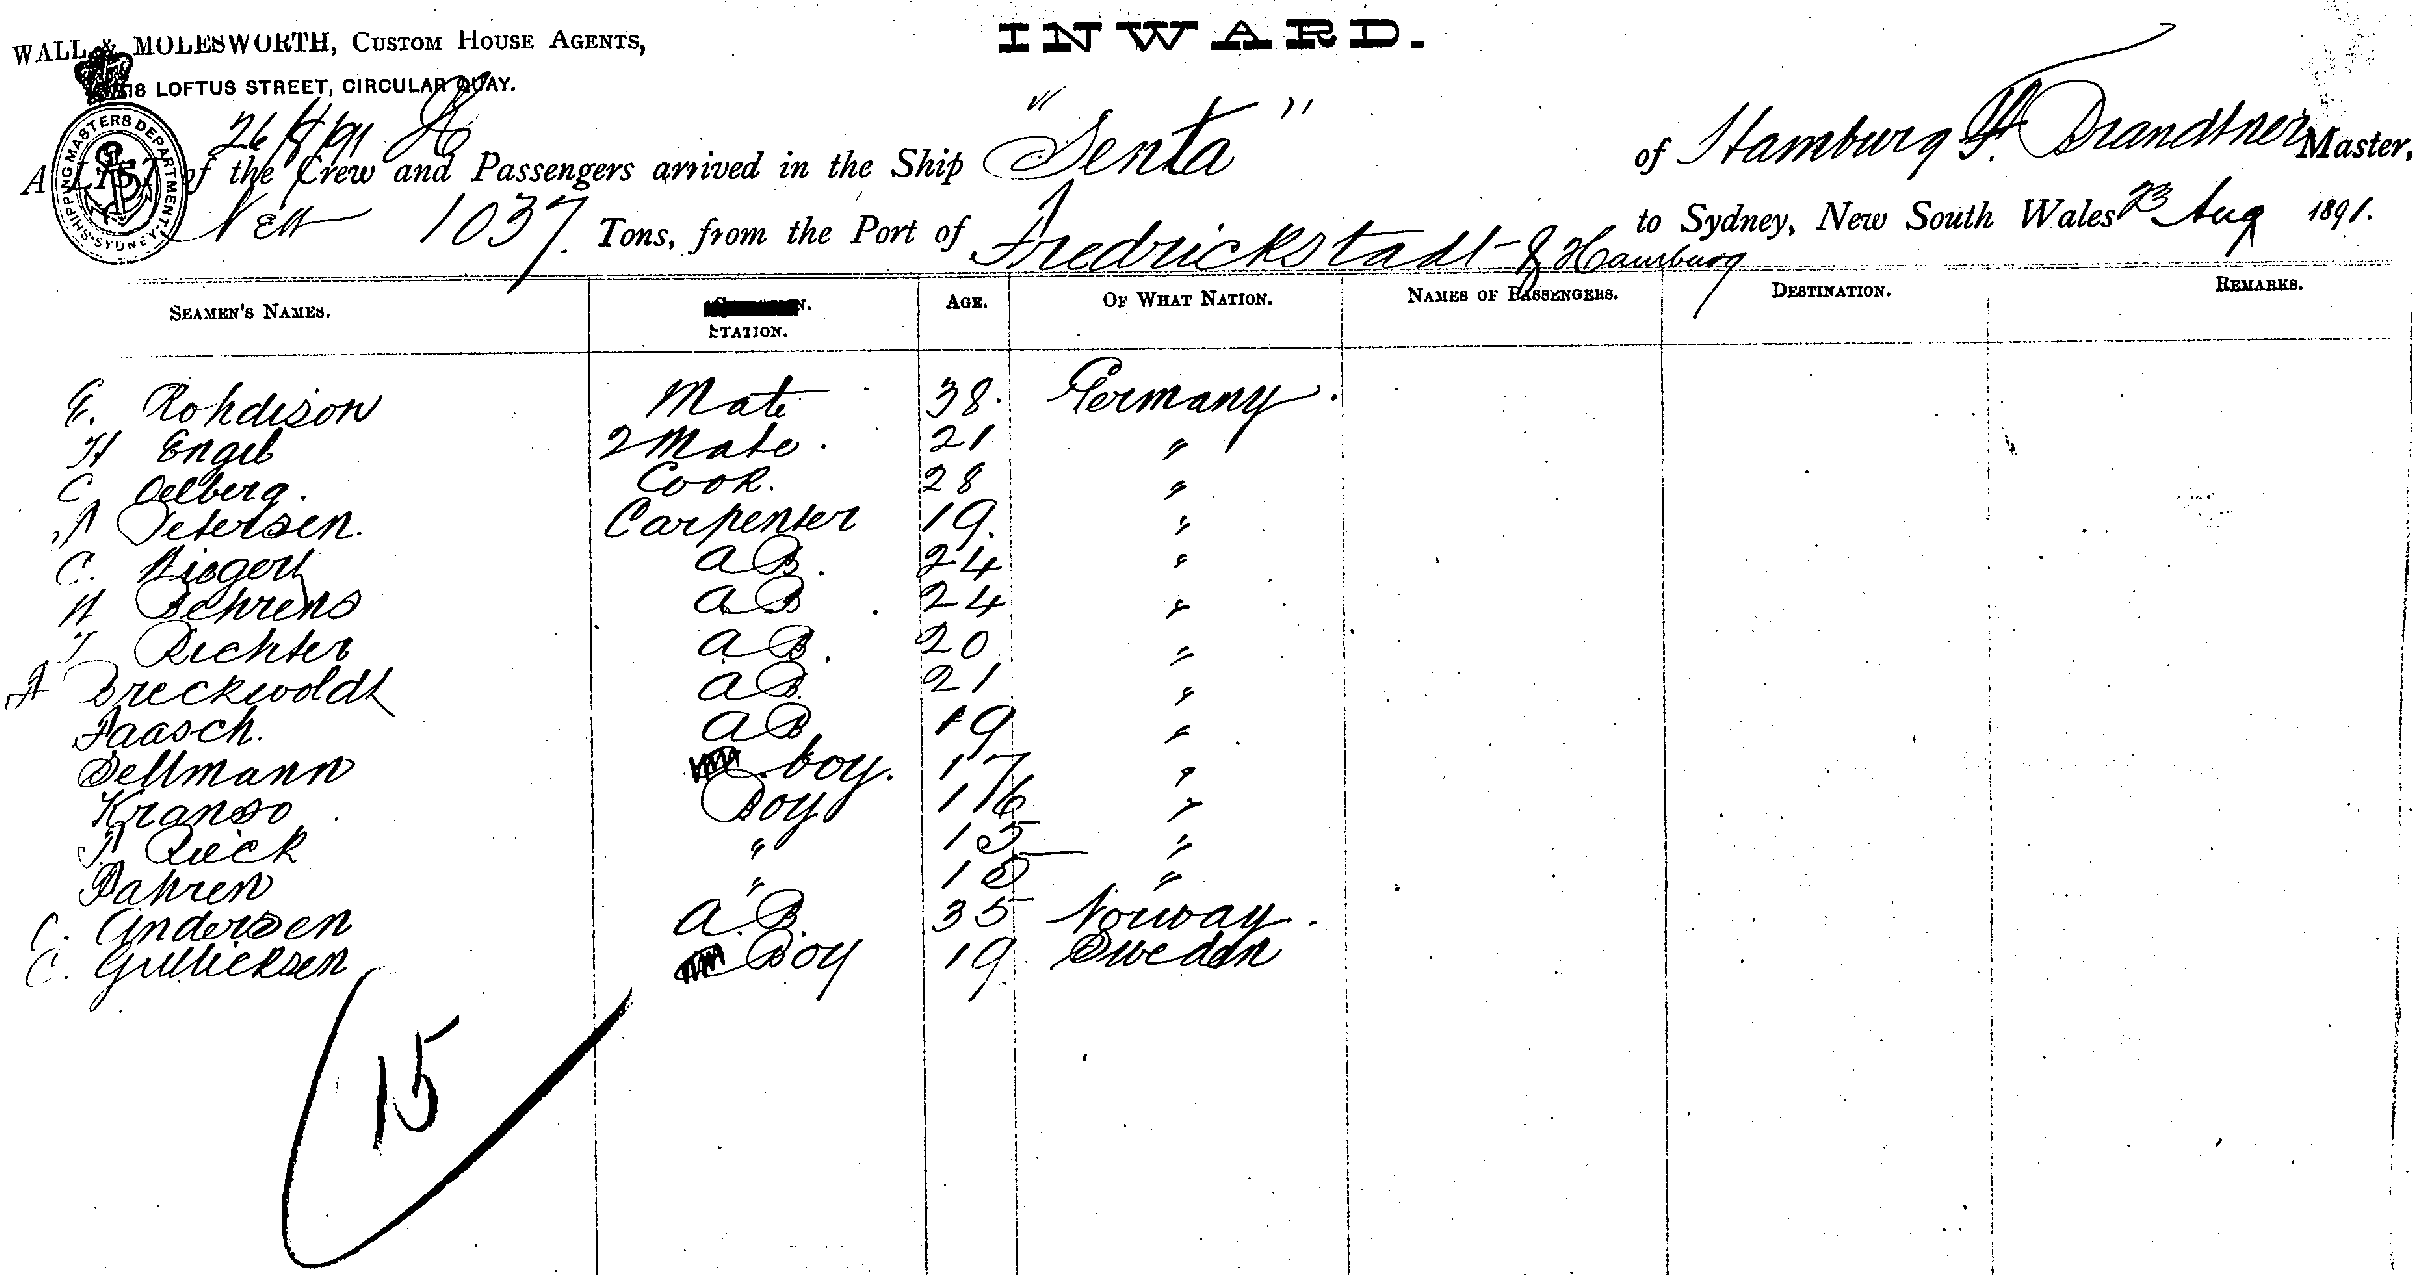 INWARD.
WALL & MOLESWORTH, CUSTOM HOUSE AGENTS,
18 LOFTUS STREET, CIRCULAR QUAY.
SHIPPING MASTERS DEPARTMENT SYDNEY
26/8/91
A LIST of the Crew and Passengers arrived in the Ship "Senta" of Hamburg Brandtner Master,
Nett 1037 Tons, from the Port of Fredrickstadt & Hamburg to Sydney, New South Wales 23 Aug 1891.
SEAMEN'S NAMES. STATION. AGE. OF WHAT NATION. NAMES OF PASSENGERS. DESTINATION. REMARKS.
E. Rohdison Mate 38. Germany.
H Engel 2 Mate. 21 "
C. Oelberg. Cook. 28 "
Petersen. Carpenter 19. "
C. AB. 24 "
H Behrens AB 24 "
Richter AB. 20 "
A Breckwoldt AB 21 "
Paasch. AB 19 "
Sellmann boy. 17 "
Boy 16 "
Rieck " 15 "
Dahren " 15 "
C. Andersen A.B. 35 Norway.
C. Gullicksen Boy 19 Sweden
15